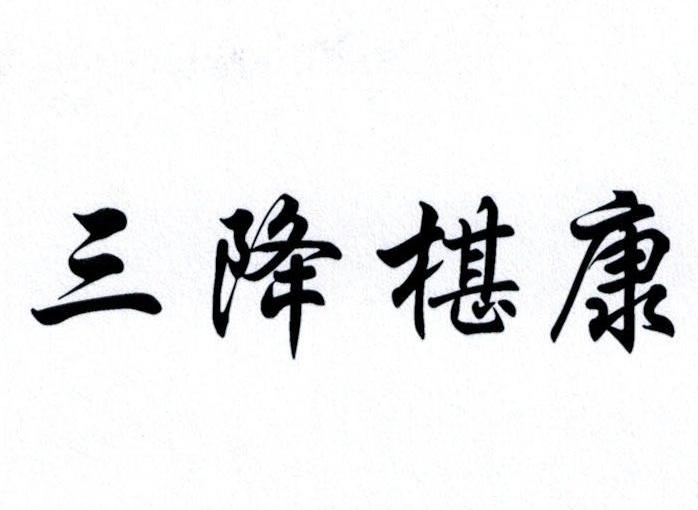 三降椹康